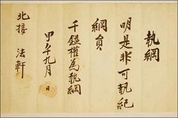 執綱
明是非可執紀
綱員
千鎰權為執綱
甲午九月
北接 法軒